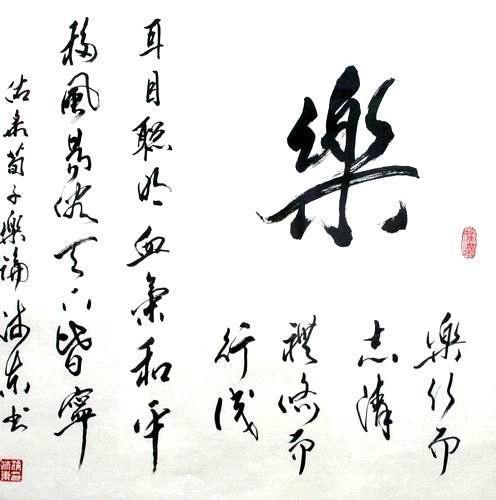 樂
樂行而
志清
禮修而
行成
耳目聰明血氣和平
移風易俗天下皆寧
荀子樂論 东书